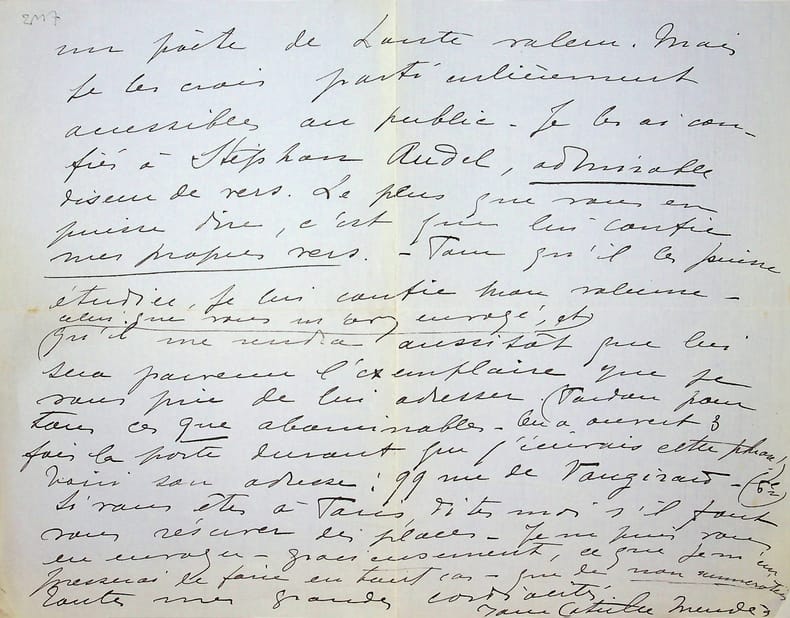 2117
un poète de haute valeur. Mais
je les crois particulièrement
accessibles au public - Je les ai con-
fiés à Stéphan Audel, admirable
diseur de vers. Le plus que vous en
puisse dire, c'est que lui confie
mes propres vers. - Pour qu'il les puisse
étudier, je lui confie mon volume -
celui que vous m'avez envoyé, et
qu'il me rendra aussitôt que lui
sera parvenu l'exemplaire que je
vous prie de lui adresser (Pardon pour
tous ces que abominables - On a ouvert 3
fois la porte durant que j'écrivais cette phrase!)
Voici son adresse : 99 rue de Vaugirard - (6e)
Si vous êtes à Paris dites moi s'il faut
vous réserver des places - Je ne puis vous
en envoyer - gracieusement, ce que je m'em-
presserai de faire en tout cas - que de non numérotées
Toutes mes grandes cordialités
Jane Catulle Mendès